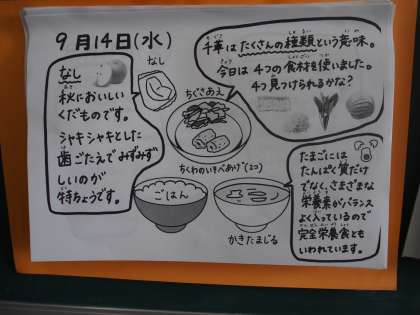 9月14日(水)
なし
秋においしい
くだものです。
シャキシャキとした
歯ごたえでみずみず
しいのが
特ちょうです。
なし
ちぐさあえ
ちくわのいそべあげ(2コ)
ごはん
かきたまじる
千草はたくさんの種類という意味。
今日は4つの食材を使いました。
4つ見つけられるかな?
たまごには
たんぱく質だけ
でなく、さまざまな
栄養素がバランス
よく入っているので
完全栄養食とも
いわれています。